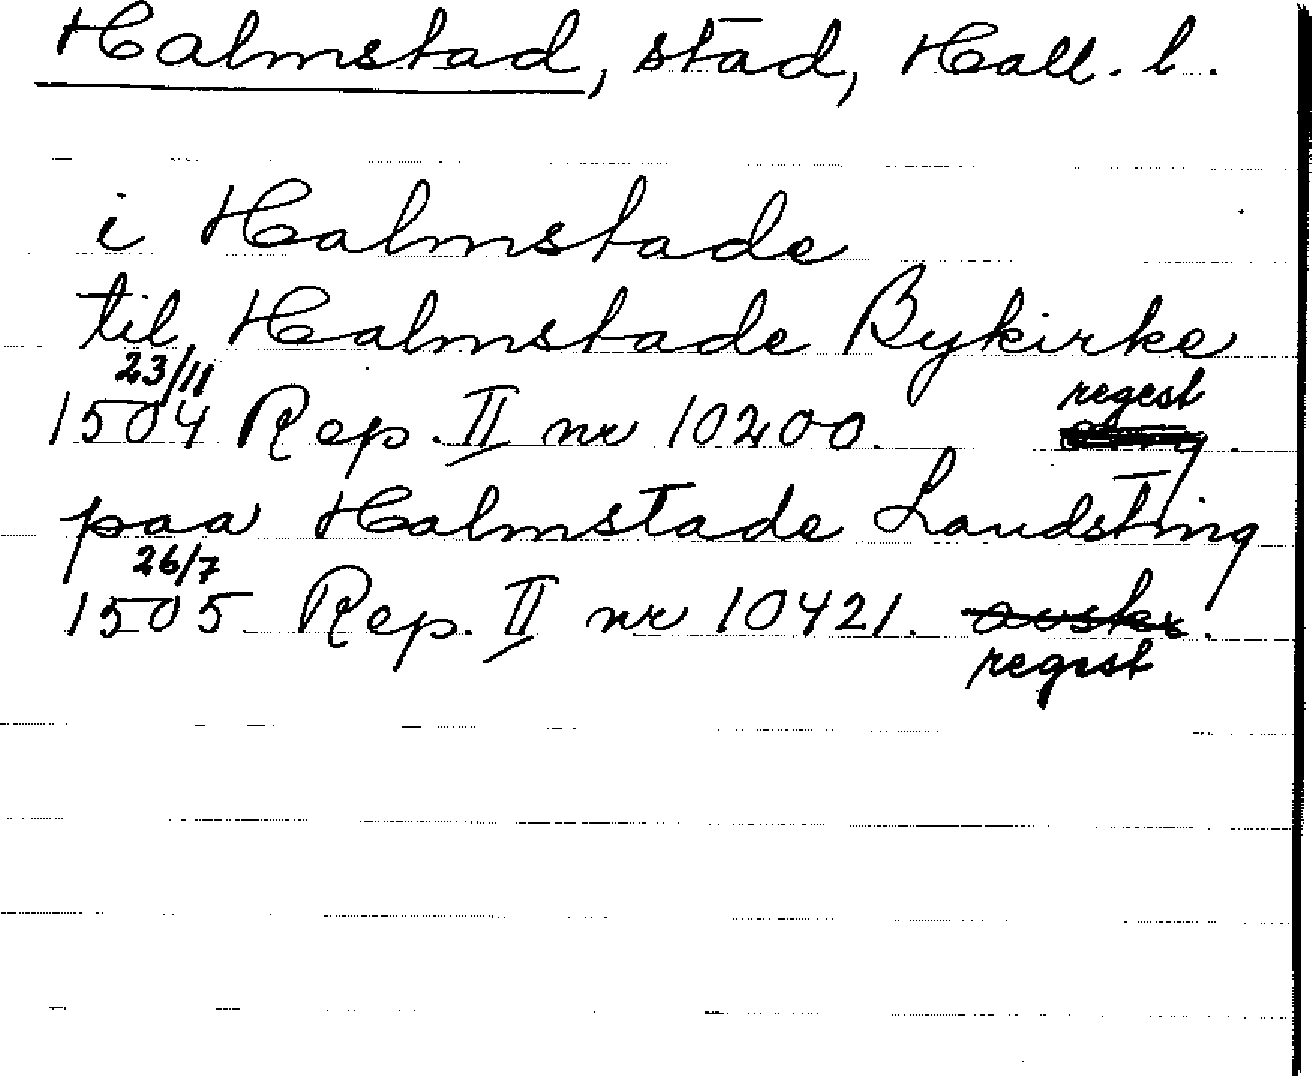 Halmstad, stad, Hall. l.
i Halmstade
til Halmstade Bykirke
23/11 regest
1504 Rep. II nr 10200.
paa Halmstade Landsting
26/7
1505 Rep. II nr 10421. avskr.
regest